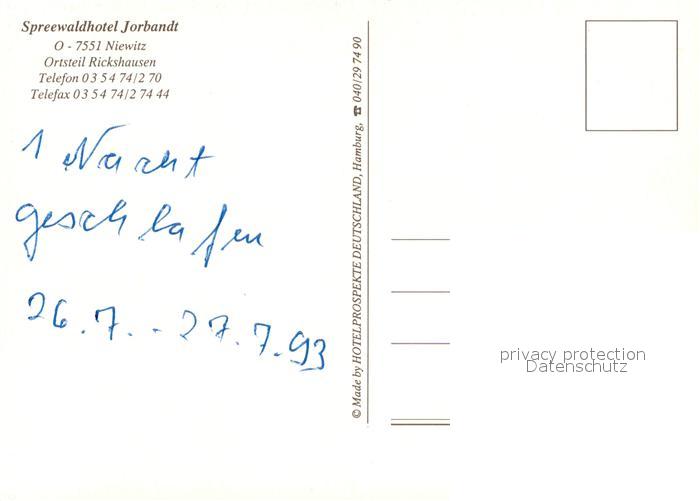 Spreewaldhotel Jorbandt
O - 7551 Niewitz
Ortsteil Rickshausen
Telefon 03 54 74/2 70
Telefax 03 54 74/2 74 44
1 Nacht
geschlafen
26.7. - 27.7.93
© Made by HOTELPROSPEKTE DEUTSCHLAND, Hamburg, ☎ 040/29 74 90
privacy protection
Datenschutz